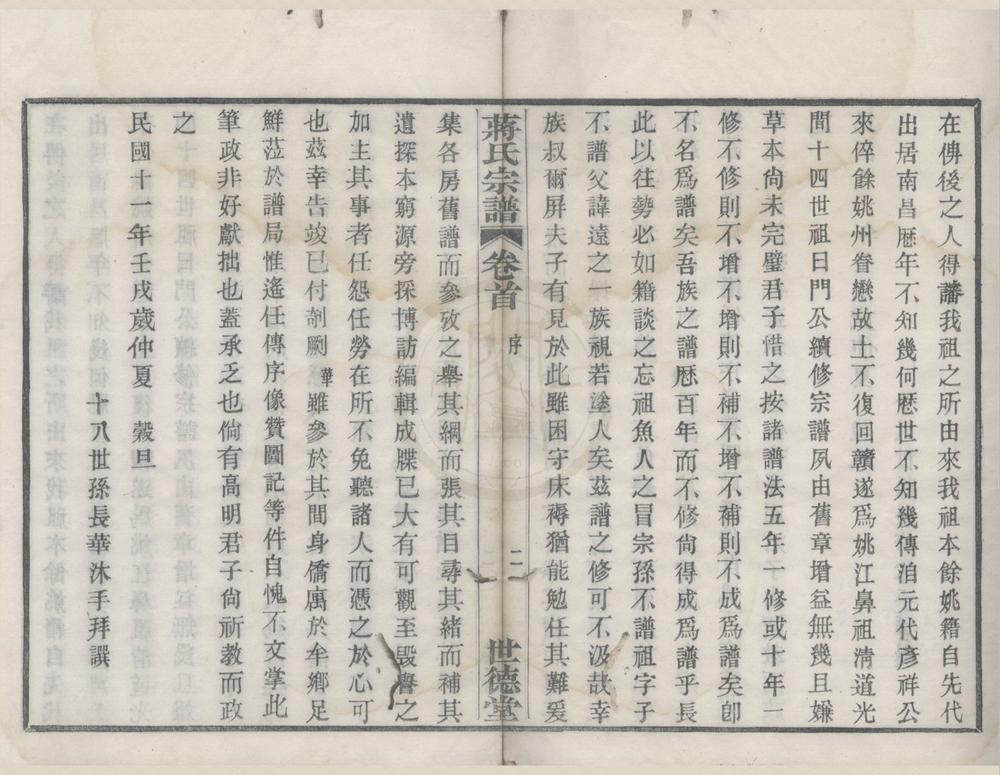 在俾後之人得諳我祖之所由來我祖本餘姚籍自先代
出居南昌厯年不知幾何厯世不知幾傳洎元代彥祥公
來倅餘姚州眷戀故土不復回贛遂爲姚江鼻祖淸道光
間十四世祖日門公續修宗譜夙由舊章增益無幾且嫌
草本尙未完璧君子惜之按諸譜法五年一修或十年一
修不修則不增不增則不補不增不補則不成爲譜矣卽
不名爲譜矣吾族之譜厯百年而不修尙得成爲譜乎長
此以往勢必如籍談之忘祖魚人之冒宗孫不譜祖字子
不譜父諱遠之一族視若塗人矣茲譜之修可不汲故幸
族叔爾屏夫子有見於此雖困守床褥猶能勉任其難爰
蔣氏宗譜 卷首 序 二 世德堂
集各房舊譜而參攷之舉其綱而張其目尋其緒而補其
遺探本窮源旁採博訪編輯成牒已大有可觀至毀譽之
加主其事者任怨任勞在所不免聽諸人而憑之於心可
也茲幸告竣已付剞劂華雖參於其間身僑寓於牟鄉足
鮮蒞於譜局惟遙任傳序像贊圖記等件自愧不文掌此
筆政非好獻拙也蓋承乏也倘有高明君子尙祈教而政
之
民國十一年壬戌歲仲夏穀旦
十八世孫長華沐手拜譔